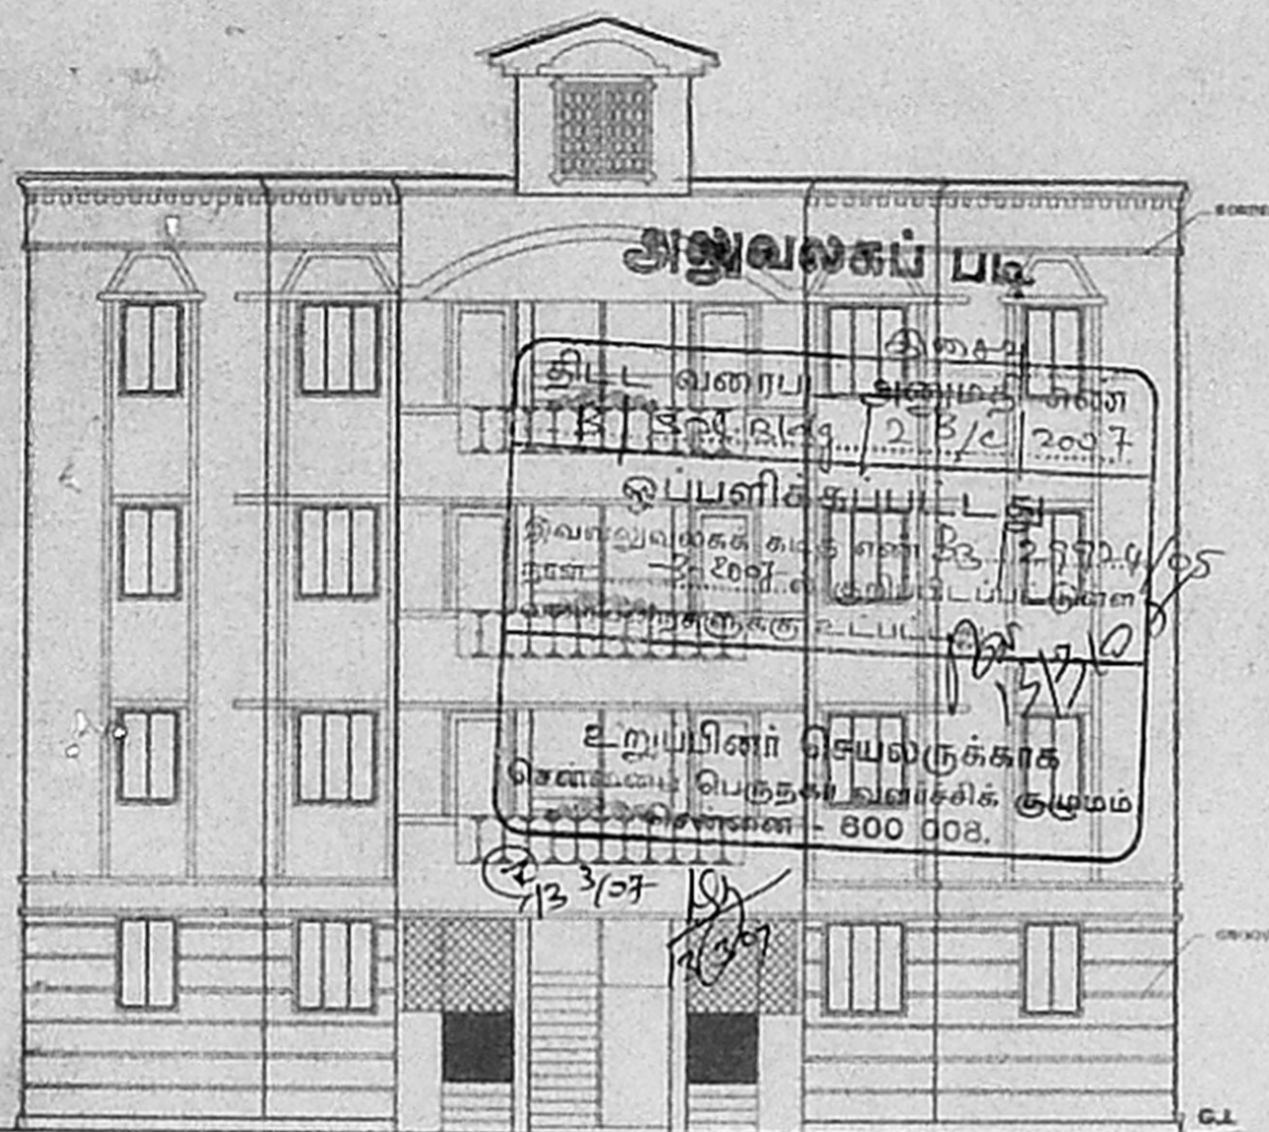 அலுவலகப் படி
இசைவு
திட்ட வரைபட அனுமதி எண்
B / Spl. Bldg / 2 B/C / 2007
ஒப்பளிக்கப்பட்டது
இவ்வலுவலகக் கடித எண் B3 /
நாள் -3-2007 ல் குறிப்பிடப்பட்டுள்ள
உட்பட்டது
13/3/07
உறுப்பினர் செயலருக்காக
சென்னைப் பெருநகர் வளர்ச்சிக் குழுமம்
சென்னை - 600 008.
13 3/07
13/3/07
G.L